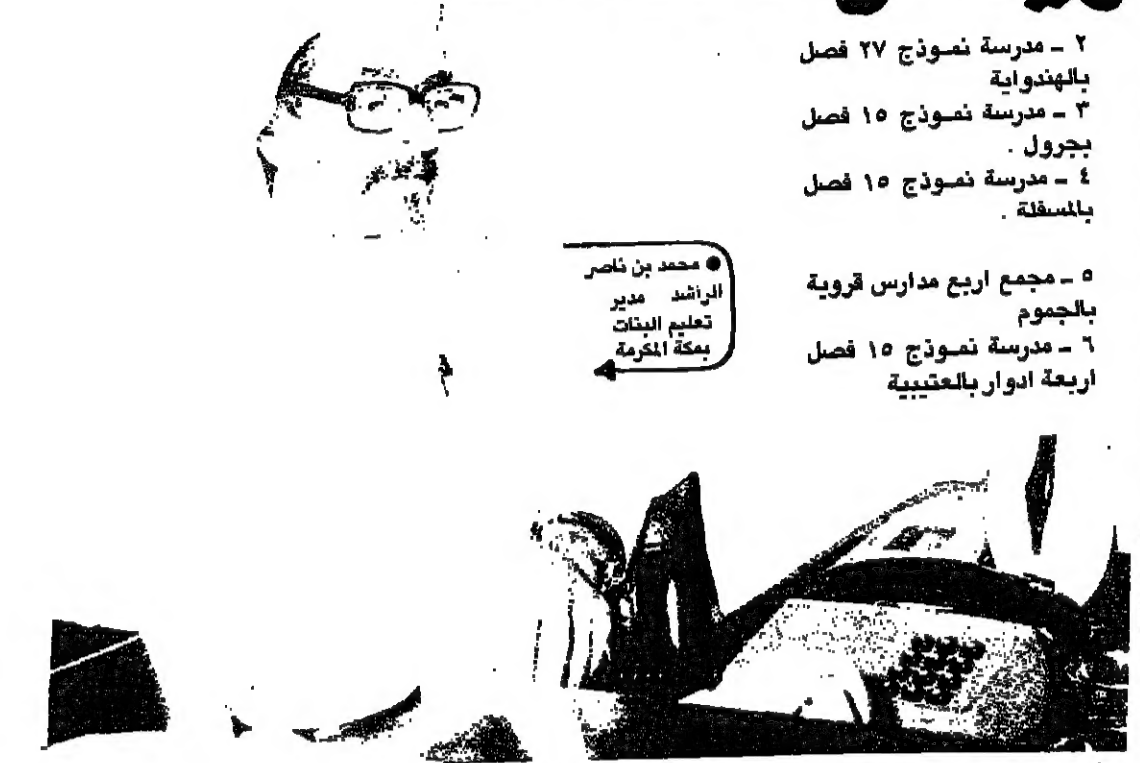 ٢ ـ مدرسة نموذج ٢٧ فصل
بالهندواية
٣ ـ مدرسة نموذج ١٥ فصل
بجرول .
٤ ـ مدرسة نموذج ١٥ فصل
بالمسفلة .
٥ ـ مجمع اربع مدارس قروية
بالجموم
٦ ـ مدرسة نموذج ١٥ فصل
اربعة ادوار بالعتيبية
● محمد بن ناصر
الراشد مدير
تعليم البنات
بمكة المكرمة